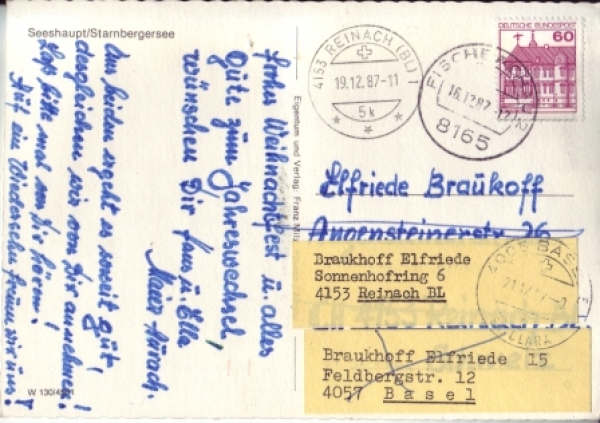 Seeshaupt/Starnbergersee
Frohes Weihnachtsfest u. alles
Gute zum Jahreswechsel,
wünschen Dir Hans u. Ella
Uns beiden ergeht es soweit gut,
desgleichen wir von Dir annehmen.
Laß bitte mal von Dir hören!
Auf ein Wiedersehn freuen wir uns!
W 130/4
Eigentum und Verlag: Franz Milz
4153 REINACH (BL) 1
19.12.87-11
5k
16.12.87
8165
DEUTSCHE BUNDESPOST
60
Elfriede Braükoff
Angensteinerstr. 26
Braukhoff Elfriede
Sonnenhofring 6
4153 Reinach BL
4005 BAS
CLARA
Braukhoff Elfriede 15
Feldbergstr. 12
4057 Basel